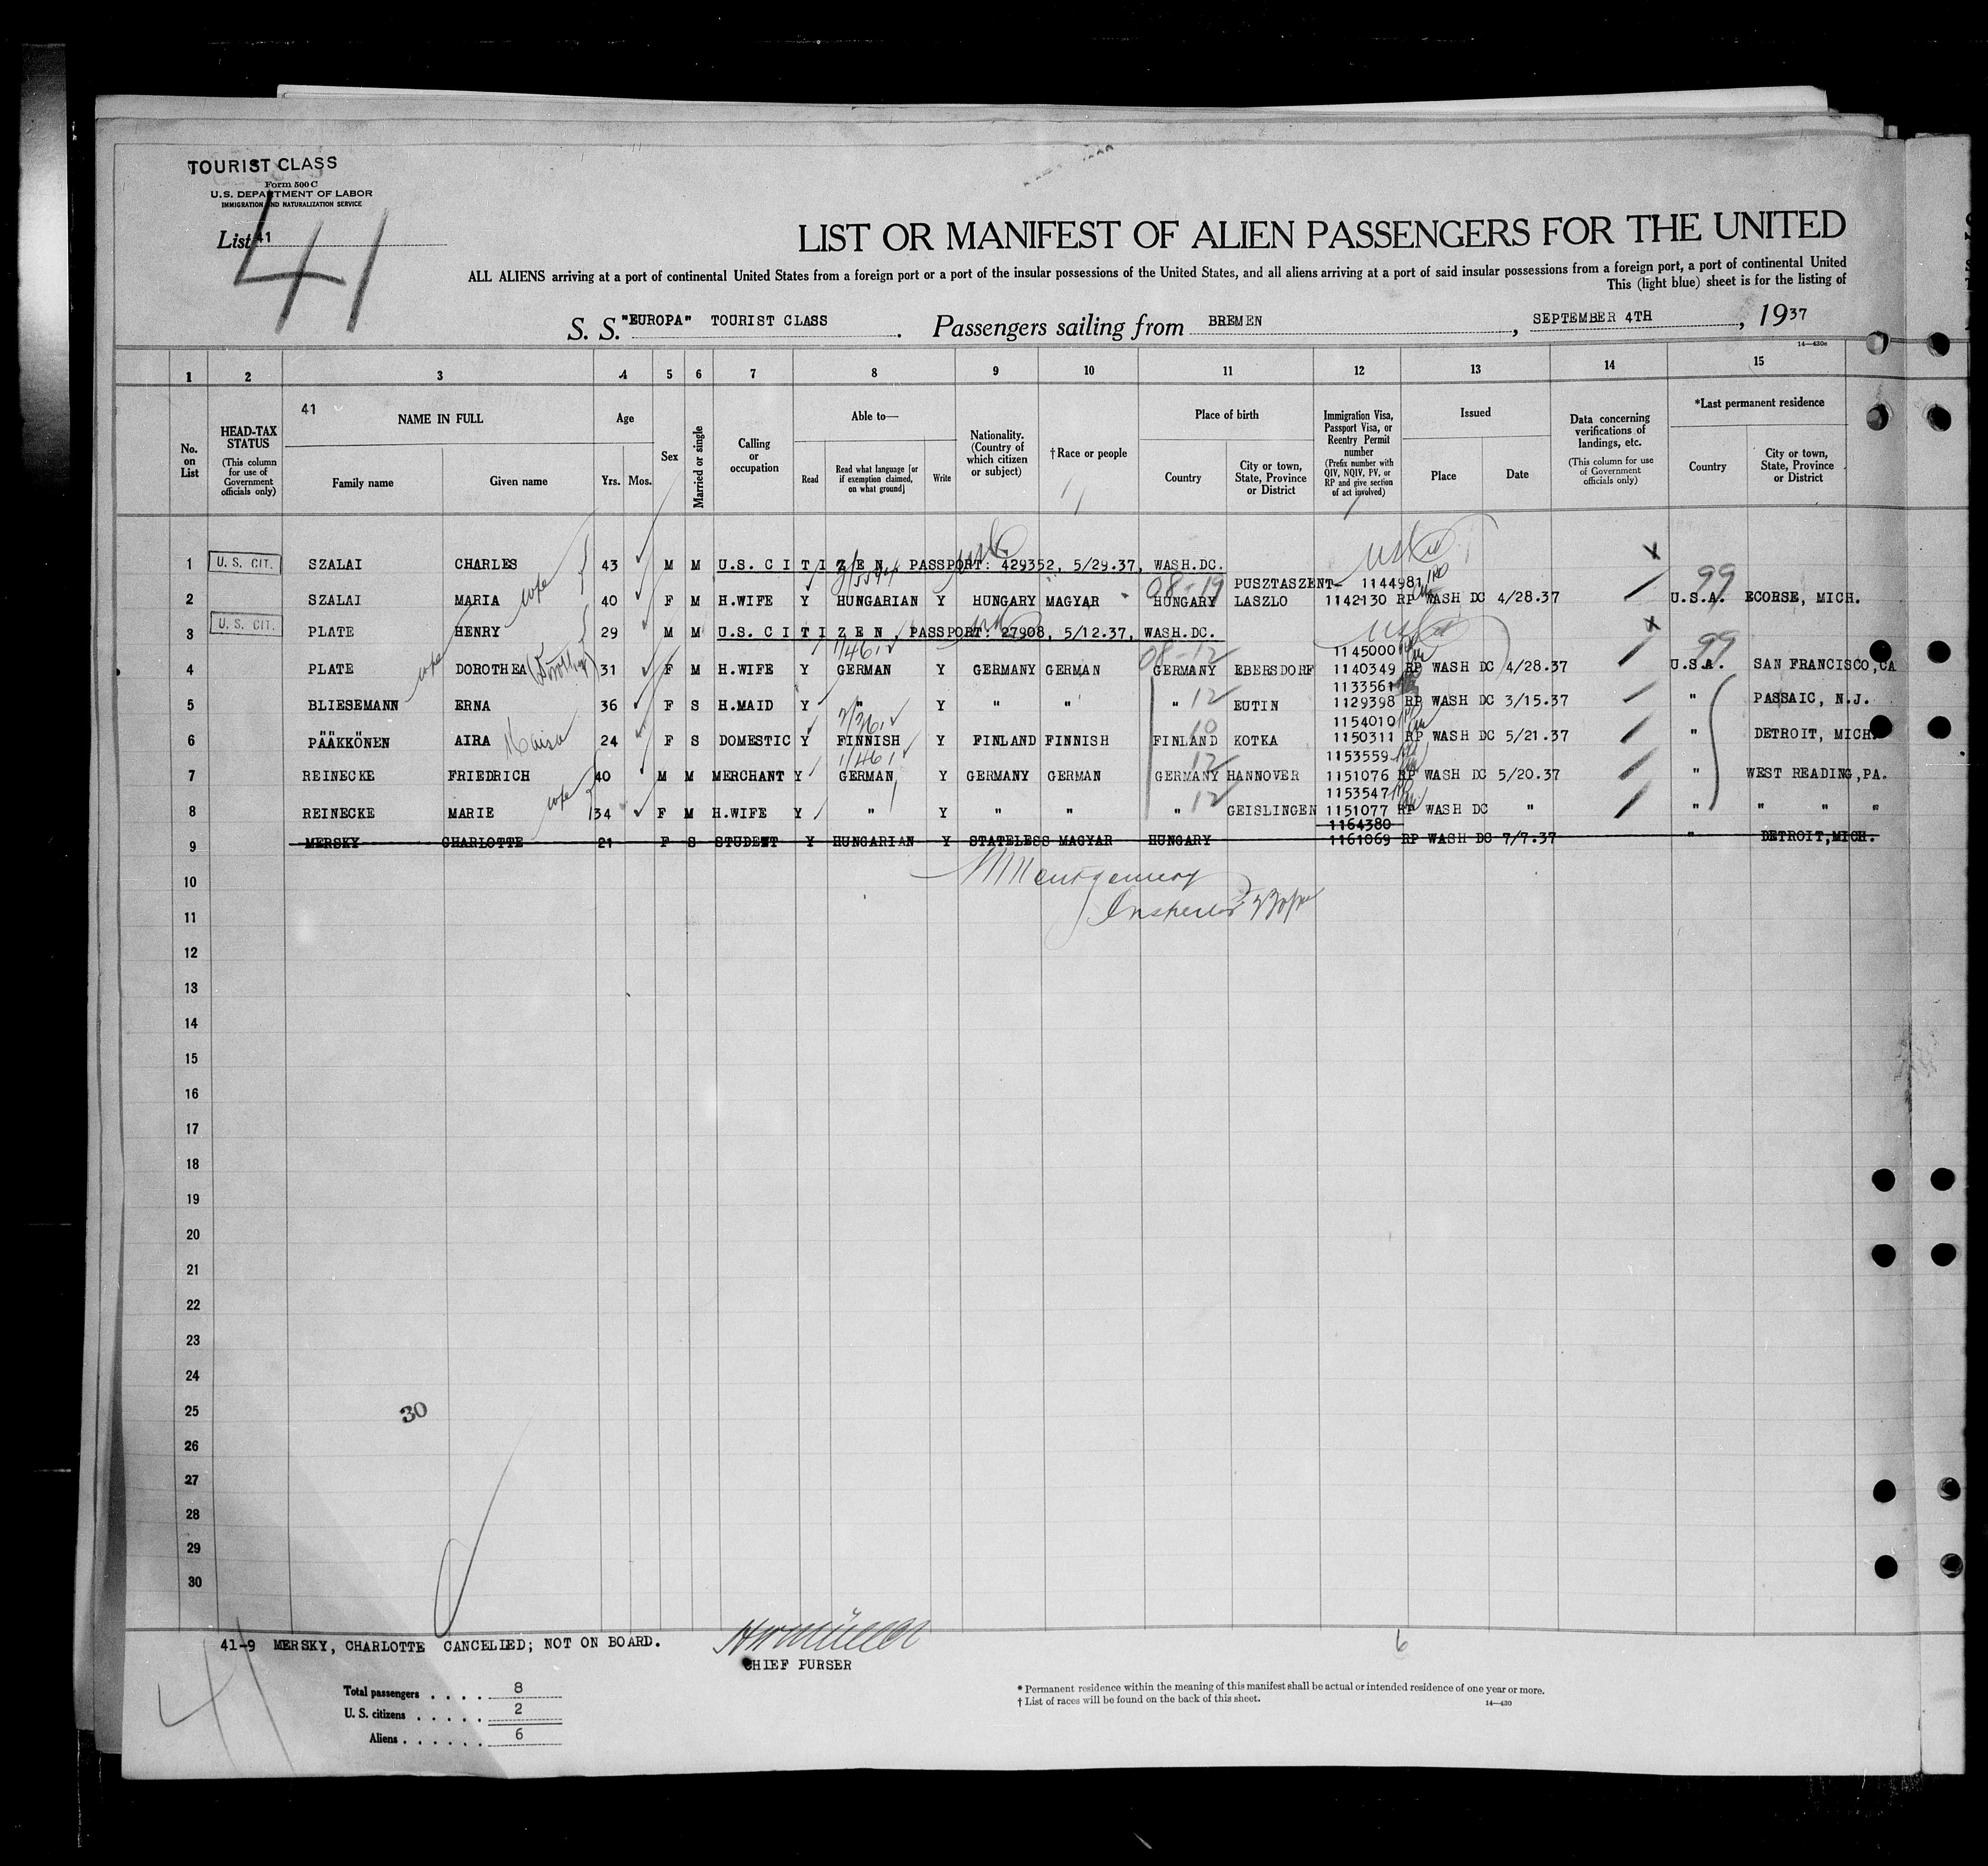 TOURIST CLASS
Form 500 C
U.S. DEPARTMENT OF LABOR
IMMIGRATION AND NATURALIZATION SERVICE
List 41
41
LIST OR MANIFEST OF ALIEN PASSENGERS FOR THE UNITED
ALL ALIENS arriving at a port of continental United States from a foreign port or a port of the insular possessions of the United States, and all aliens arriving at a port of said insular possessions from a foreign port, a port of continental United
This (light blue) sheet is for the listing of
S. S. "EUROPA" TOURIST CLASS . Passengers sailing from BREMEN , SEPTEMBER 4TH , 1937
14—430c
1 2 3 4 5 6 7 8 9 10 11 12 13 14 15
No. on List
HEAD-TAX STATUS (This column for use of Government officials only)
41 NAME IN FULL
Family name Given name
Age Yrs. Mos.
Sex
Married or single
Calling or occupation
Able to—
Read Read what language [or if exemption claimed, on what ground] Write
Nationality. (Country of which citizen or subject)
†Race or people
Place of birth
Country City or town, State, Province or District
Immigration Visa, Passport Visa, or Reentry Permit number (Prefix number with QIV, NQIV, PV, or RP and give section of act involved)
Issued
Place Date
Data concerning verifications of landings, etc. (This column for use of Government officials only)
*Last permanent residence
Country City or town, State, Province or District
1 U. S. CIT. SZALAI CHARLES 43 M M U.S. C I T I Z E N, PASSPORT: 429352, 5/29.37, WASH.DC. X
08-19 PUSZTASZENT- 1144981 99
2 SZALAI MARIA 40 F M H.WIFE Y HUNGARIAN Y HUNGARY MAGYAR HUNGARY LASZLO 1142130 RP WASH DC 4/28.37 U.S.A. ECORSE, MICH.
3 U. S. CIT. PLATE HENRY 29 M M U.S. C I T I Z E N, PASSPORT: 27908, 5/12.37, WASH.DC. X
1/46 08-12 1145000 99
4 PLATE DOROTHEA (Dorothy) 31 F M H.WIFE Y GERMAN Y GERMANY GERMAN GERMANY EBERSDORF 1140349 RP WASH DC 4/28.37 U.S.A. SAN FRANCISCO,CA
12 1133561
5 BLIESEMANN ERNA 36 F S H.MAID Y " Y " " " EUTIN 1129398 RP WASH DC 3/15.37 " PASSAIC, N.J.
10 1154010
6 PÄÄKKÖNEN AIRA 24 F S DOMESTIC Y FINNISH Y FINLAND FINNISH FINLAND KOTKA 1150311 RP WASH DC 5/21.37 " DETROIT, MICH.
1/46 12 1153559
7 REINECKE FRIEDRICH 40 M M MERCHANT Y GERMAN Y GERMANY GERMAN GERMANY HANNOVER 1151076 RP WASH DC 5/20.37 " WEST READING,PA.
12 1153547
8 REINECKE MARIE 34 F M H.WIFE Y " Y " " " GEISLINGEN 1151077 RP WASH DC " " " " "
1164380
9 MERSKY CHARLOTTE 21 F S STUDENT Y HUNGARIAN Y STATELESS MAGYAR HUNGARY 1161069 RP WASH DC 7/7.37 " DETROIT,MICH.
10
11 Inspector
12
13
14
15
16
17
18
19
20
21
22
23
24
25 30
26
27
28
29
30
41-9 MERSKY, CHARLOTTE CANCELLED; NOT ON BOARD.
CHIEF PURSER
6
41
Total passengers . . . . 8
U. S. citizens . . . . . 2
Aliens . . . . . . 6
* Permanent residence within the meaning of this manifest shall be actual or intended residence of one year or more.
† List of races will be found on the back of this sheet.
14—430